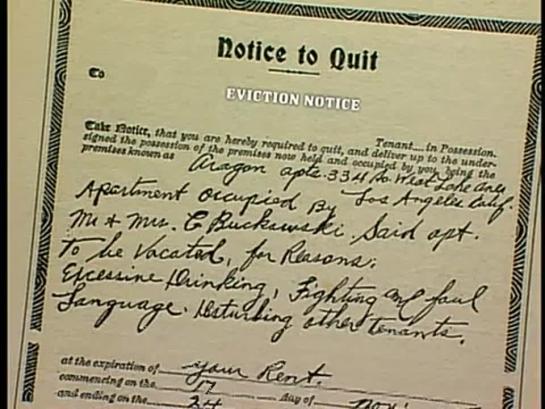 Notice to Quit
To
EVICTION NOTICE
Tenant.... in Possession.
Take Notice, that you are hereby required to quit, and deliver up to the under-
signed the possession of the premises now held and occupied by you, being the
premises known as Aragon apts. 334 So. West Lake Ave
Los Angeles Calif.
Apartment occupied By
Mr + Mrs. C Buckawski. Said apt.
to be Vacated, for Reasons:
Excessine Drinking, Fighting and foul
Language. Disturbing other tenants.
at the expiration of your Rent.
commencing on the 17 day of Nov.
and ending on the 24